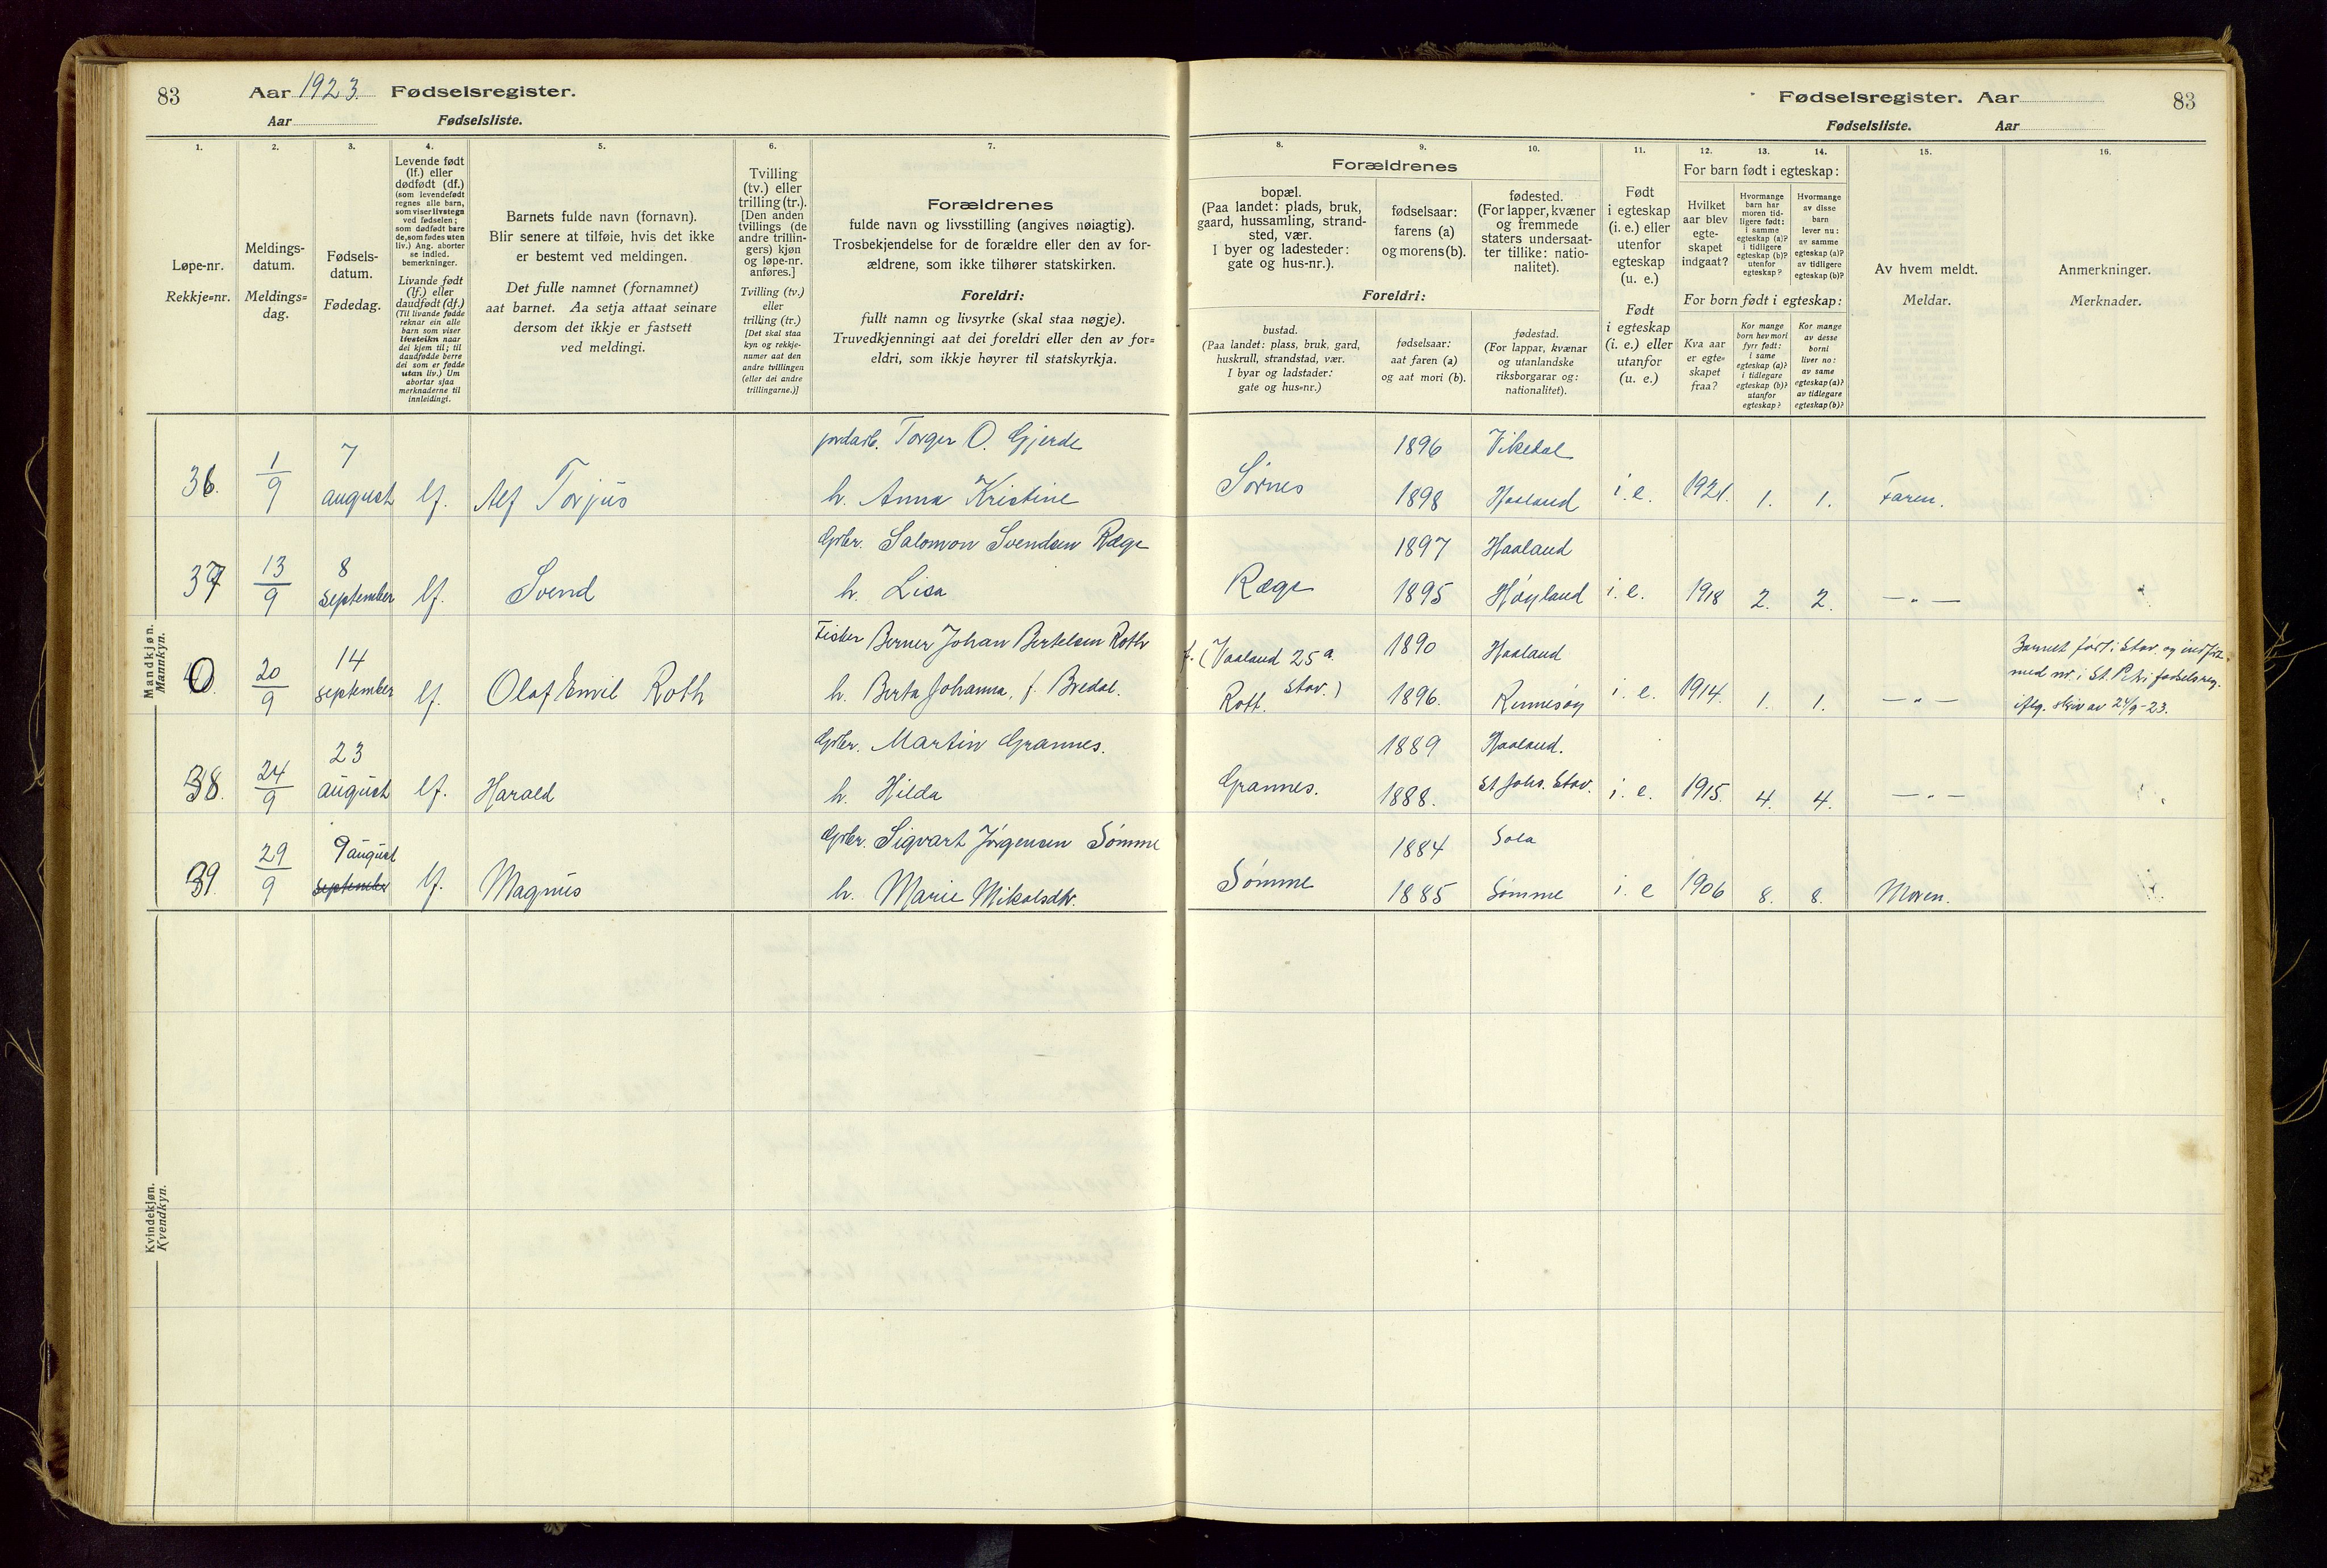 83 Aar 1923. Fødselsregister.
Aar Fødselsliste.
Fødselsregister. Aar 83
Fødselsliste. Aar
1.
Løpe-nr.
Rekkje=nr.
2.
Meldings-
datum.
Meldings=
dag.
3.
Fødsels-
datum.
Fødedag.
4.
Levende født
(lf.) eller
dødfødt (df.)
(som levendefødt
regnes alle barn,
som viser livstegn
ved fødselen;
som dødfødt bare
de, som fødes uten
liv.) Ang. aborter
se indled.
bemerkninger.
Livande født
(lf.) eller
daudfødt (df.)
(Til livande fødde
reknar ein alle
barn som viser
livsteikn naar
dei kjem til; til
daudfødde berre
dei som er fødde
utan liv.) Um
abortar sjaa
merknaderne til
innleidingi.
5.
Barnets fulde navn (fornavn).
Blir senere at tilføie, hvis det ikke
er bestemt ved meldingen.
Det fulle namnet (fornamnet)
aat barnet. Aa setja attaat seinare
dersom det ikkje er fastsett
ved meldingi.
6.
Tvilling
(tv.) eller
trilling (tr.).
[Den anden
tvillings (de
andre trillin-
gers) kjøn
og løpe-nr.
anføres.]
Tvilling (tv.)
eller
trilling (tr.)
[Det skal staa
kyn og rekkje-
numer aat den
andre tvillingen
(eller dei andre
trillingarne.)]
7.
Forældrenes
fulde navn og livsstilling (angives nøiagtig).
Trosbekjendelse for de forældre eller den av for-
ældrene, som ikke tilhører statskirken.
Foreldri:
fullt namn og livsyrke (skal staa nøgje).
Truvedkjenningi aat dei foreldri eller den av for=
eldri, som ikkje høyrer til statskyrkja.
Forældrenes
8.
bopæl.
(Paa landet: plads, bruk,
gaard, hussamling, strand-
sted, vær.
I byer og ladesteder:
gate og hus-nr.).
Foreldri:
bustad.
(Paa landet: plass, bruk, gard,
huskrull, strandstad, vær.
I byar og ladstader:
gate og hus=nr.)
9.
fødselsaar:
farens (a)
og morens (b).
fødselsaar:
aat faren (a)
og aat mori (b).
10.
fødested.
(For lapper, kvæner
og fremmede
staters undersaat-
ter tillike: natio-
nalitet).
fødestad.
(For lappar, kvænar
og utanlandske
riksborgarar og:
nationalitet).
11.
Født
i egteskap
(i. e.) eller
utenfor
egteskap
(u. e.)
Født
i egteskap
(i. e.) eller
utanfor
(u. e.)
For barn født i egteskap:
12.
Hvilket
aar blev
egte-
skapet
indgaat?
For born født i egteskap:
Kva aar
er egte=
skapet
fraa?
13.
Hvormange
barn har
moren tid-
ligere født:
i samme
egteskap (a)?
i tidligere
egteskap (b)?
utenfor
egteskap?
Kor mange
born hev mori
fyrr født:
i same
egteskap (a)?
i tidlegare
egteskap (b)?
utanfor
egteskap?
14.
Hvormange
av disse
barn
lever nu:
av samme
egteskap (a)?
av tidligere
egteskap (b)?
Kor mange
av desse
borni
liver no:
av same
egteskap (a)?
av tidlegare
egteskap (b)?
15.
Av hvem meldt.
Meldar.
16.
Anmerkninger.
Merknader.
Mandkjøn.
Mannkyn.
36. 1/9 7 august lf. Alf Torjus
jordarb. Torger O. Gjerde
h. Anna Kristine
Sørnes 1896 Vikedal
1898 Haaland i. e. 1921. 1. 1. Faren.
37 13/9 8 september lf. Svend
Gbr. Salomon Svendsen Ræge
h. Lisa
Ræge 1897 Haaland
1895 Høyland i. e. 1918 2. 2. —„—
0. 20/9 14 september lf. Olaf Emil Roth
Fisker Berner Johan Bertelsen Roth
h. Berta Johanna, f. Bredal.
f. (Vaaland 25 a. Stav.)
Rott. 1890 Haaland
1896. Rennesøy i. e. 1914. 1. 1. —„—
Barnet født i Stav. og indført
med nr. i St. Petri fødselsreg.
iflg. skriv av 24/9-23.
38. 24/9 23 august lf. Harald
Gbr. Martin Grannes.
h. Hilda
Grannes. 1889 Haaland.
1888. St Johs. Stav. i. e. 1915. 4. 4. —„—
39. 29/9 9 august september lf. Magnus
Gbr. Sigvart Jørgensen Sømme
h. Marie Mikalsdtr.
Sømme 1884 Sola
1885 Sømme i. e 1906 8. 8. Moren.
Kvindekjøn.
Kvendkyn.